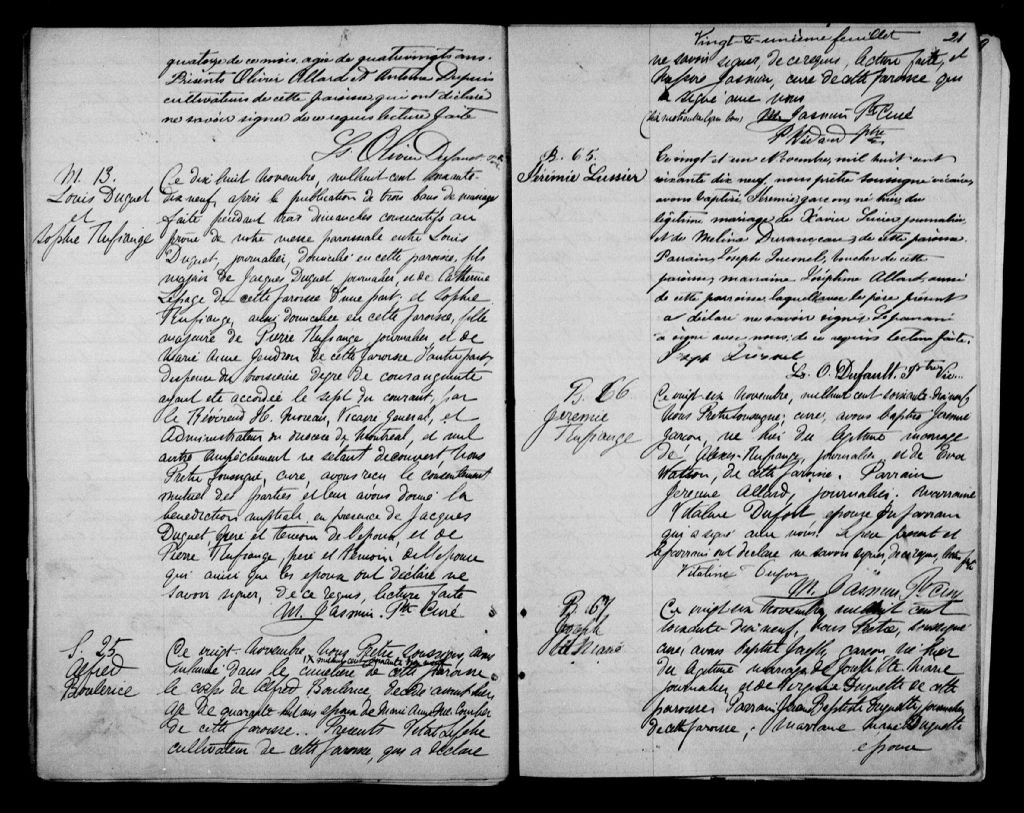 quatorze de ce mois, agé de quatrevingts ans.
Présents Olivier Allard et Antoine Dupuis
cultivateurs de cette paroisse, qui ont déclaré
ne savoir signer de ce requis lecture faite
Ls Olivier Dufault
M. 13.
Louis Duquet
et
Sophie Rufiange
Ce dix huit novembre, mil huit cent soixante
dix neuf, après la publication de trois bans de mariage
faite pendant trois dimanches consécutifs au
prône de notre messe paroissiale entre Louis
Duquet, journalier, domicilié en cette paroisse, fils
majeur de Jacques Duquet journalier, et de Catherine
Lepage de cette paroisse d'une part, et Sophie
Rufiange, aussi domiciliée en cette paroisse, fille
majeure de Pierre Rufiange journalier et de
Marie Anne Gendron de cette paroisse d'autre part
dispense du troisième degré de consanguinité
ayant été accordée le sept du courant, par
le Révérend H. Moreau, Vicaire General, et
Administrateur du diocese de Montreal, et nul
autre empêchement ne s'etant decouvert, Nous
Prêtre soussigné, curé, avons reçu le consentement
mutuel des parties et leur avons donné la
benediction nuptiale, en presence de Jacques
Duquet, père et temoin de l'epoux et de
Pierre Rufiange, père et temoin de l'epouse
qui ainsi que les epoux ont déclaré ne
savoir signer, de ce requis, lecture faite
M. Jasmin Ptre Curé
S. 25
Alfred
Boulerice
Ce vingt novembre, Nous Prêtre soussigné, avons
inhumé dans le cimetière de cette paroisse
le corps de Alfred Boulerice, décédé avant hier
agé de quarante huit ans epoux de Marie Anne
de cette paroisse. Presents
cultivateur de cette paroisse, qui a déclaré
Vingt & unième feuillet
21
ne savoir signer, de ce requis, lecture faite, et
Jasmin, curé de cette paroisse qui
a signé avec nous
M. Jasmin Ptre Curé
ptre
B. 65.
Jérémie Lussier
Ce vingt et un Novembre, mil huit cent
soixante dix neuf, nous prêtre soussigné vicaire
avons baptisé Jérémie, garçon, né hier, du
légitime mariage de Xavier Lussier journalier
et de Melina Duranceau, de cette paroisse.
Parrain, Joseph Quesnel, boucher de cette
paroisse, marraine Joséphine Allard, aussi
de cette paroisse laquelle avec le père présent
a déclaré ne savoir signer. Le parrain
a signé avec nous, de ce requis lecture faite.
Joseph Quesnel
Ls. O. Dufault. Ptre Vic.
B. 66
Jeremie
Rufiange
Ce vingt six Novembre, mil huit cent soixante dix neuf
Nous Prêtre soussigné, curé, avons baptisé Jeremie
garçon, né hier du légitime mariage
de Alexis Rufiange, journalier et de Eva
Watson, de cette paroisse. Parrain
Jeremie Allard, journalier. Marraine
Vitaline Dufort epouse du parrain
qui a signé avec nous. Le père present et
le parrain ont déclaré ne savoir signer, de ce requis, lecture faite
Vitaline Dufor
M. Jasmin, Ptre Curé
B. 67
Joseph
Ste Marie
Ce vingt six Novembre mil huit cent
soixante dix neuf, Nous Pretre, soussigné
curé, avons baptisé Joseph, garcon né hier
du légitime mariage de Joseph Ste Marie
journalier, et de Virginie Duquette de cette
paroisse. Parrain, Jean Baptiste Duquette, journalier
de cette paroisse, Marraine Duquette
epouse